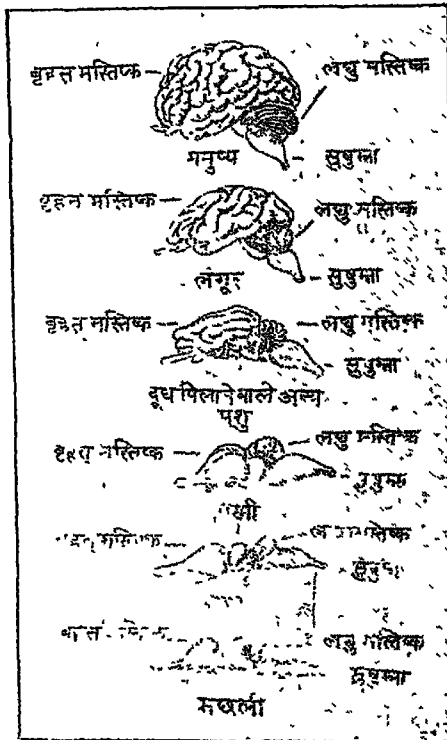 बृहत मस्तिष्क
लघु मस्तिष्क
मनुष्य
सुषुम्ना
बृहत मस्तिष्क
लघु मस्तिष्क
लंगूर
सुषुम्ना
बृहत मस्तिष्क
लघु मस्तिष्क
सुषुम्ना
दूध पिलाने वाले अन्य
पशु
बृहत मस्तिष्क
लघु मस्तिष्क
मस्तिष्क
सुषुम्ना
लघु मस्तिष्क
सुषुम्ना
मछली